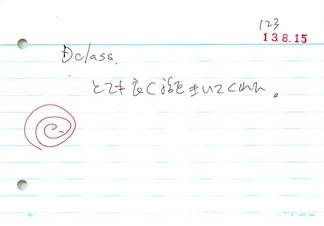 123
13.8.15
Dclass.
とても良く話をきいてくれた。